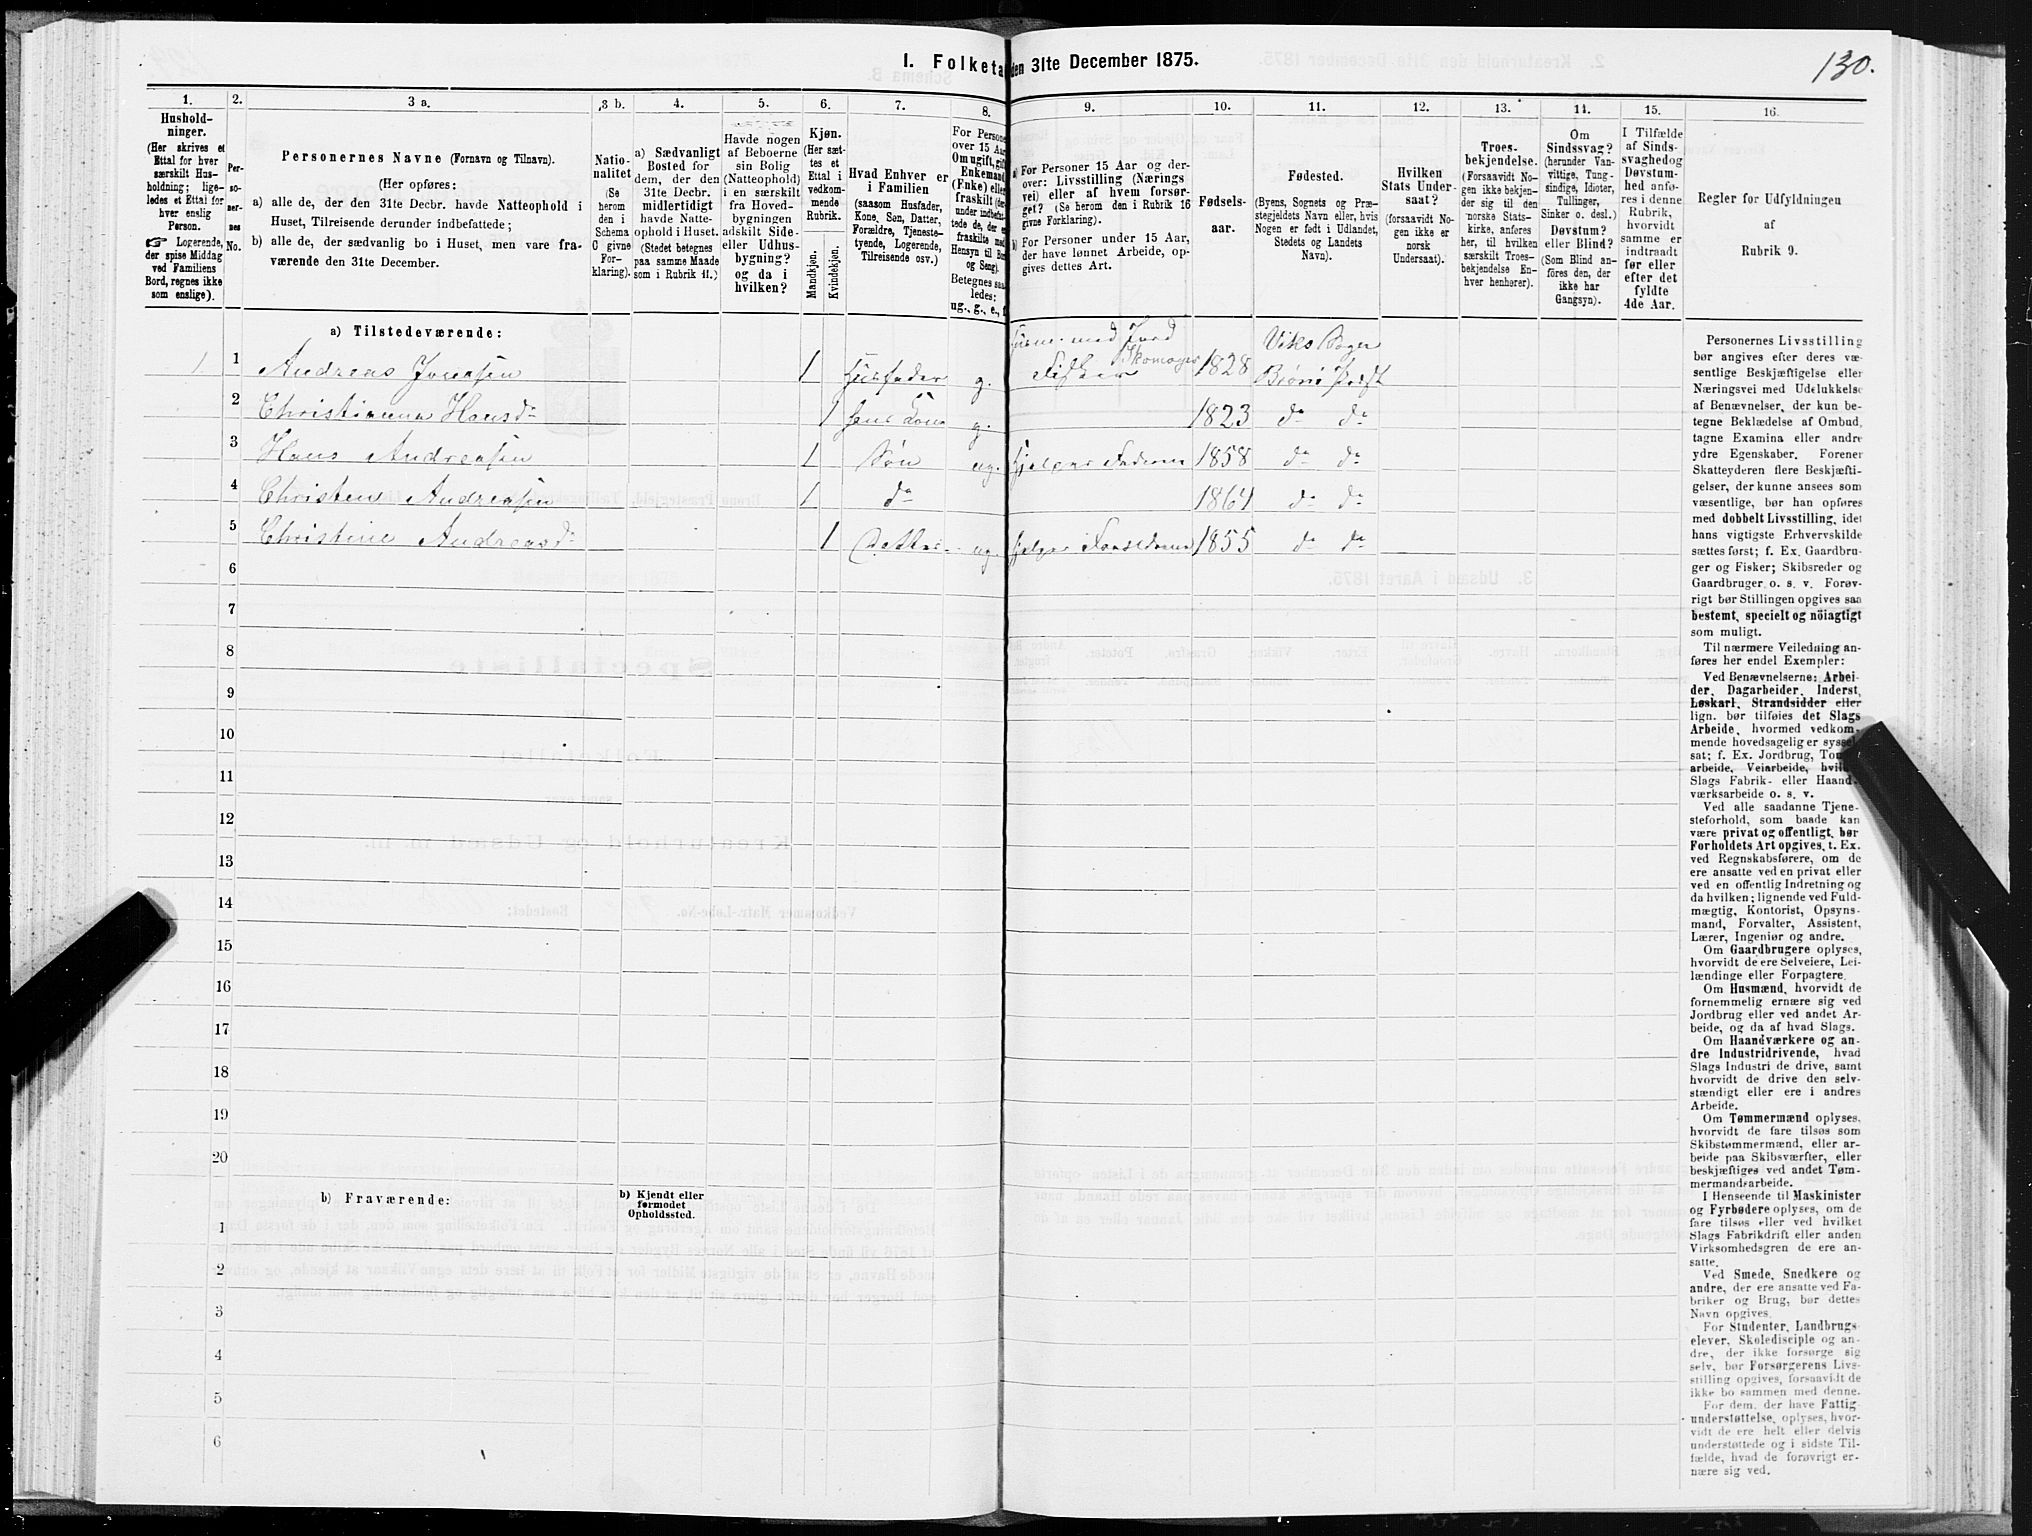 130.
I. Folketa den 31te December 1875.
1. 2. 3 a. 3 b. 4. 5. 6. 7. 8. 9. 10. 11. 12. 13. 14. 15. 16.
Hushold-
ninger.
(Her skrives et
Ettal for hver
særskilt Hus-
holdning; lige-
ledes et Ettal for
hver enslig
Person.
Logerende,
der spise Middag
ved Familiens
Bord, regnes ikke
som enslige).
Per-
so-
ner-
nes
No.
Personernes Navne (Fornavn og Tilnavn).
(Her opføres:
a) alle de, der den 31te Decbr. havde Natteophold i
Huset, Tilreisende derunder indbefattede;
b) alle de, der sædvanlig bo i Huset, men vare fra-
værende den 31te December.
Natio-
nalitet
(Se
herom
den i
Schema
C givne
For-
klaring).
a) Sædvanligt
Bosted for
dem, der den
31te Decbr.
midlertidigt
havde Natte-
ophold i Huset.
(Stedet betegnes
paa samme Maade
som i Rubrik 11.)
Havde nogen
af Beboerne
sin Bolig
(Natteophold)
i en særskilt
fra Hoved-
bygningen
adskilt Side-
eller Udhus-
bygning?
og da i
hvilken?
Kjøn.
(Her sæt-
tes et
Ettal i
vedkom-
mende
Rubrik.
Mandkjøn.
Kvindekjøn.
Hvad Enhver er
i Familien
(saasom Husfader,
Kone, Søn, Datter,
Forældre, Tjeneste-
tyende, Logerende,
Tilreisende osv.)
For Persone
over 15 Aar
Om ugift, gift
Enkemand
(Enke) elle
fraskilt
Betegnes saa
ledes:
ug., g., e., f.
a) For Personer 15 Aar og der-
over: Livsstilling (Nærings
vei) eller af hvem forsør-
get? (Se herom den i Rubrik 16
givne Forklaring).
b) For Personer under 15 Aar,
der have lønnet Arbeide, op-
gives dettes Art.
Fødsels-
aar.
Fødested.
(Byens, Sognets og Præ-
stegjeldets Navn eller, hvis
Nogen er født i Udlandet,
Stedets og Landets
Navn).
Hvilken
Stats Under-
saat?
(forsaavidt No-
gen ikke er
norsk
Undersaat).
Troes-
bekjendelse.
(Forsaavidt No-
gen ikke bekjen-
der sig til den
norske Stats-
kirke, anføres
her, til hvilken
særskilt Troes-
bekjendelse En-
hver henhører).
Om
Sindssvag?
(herunder Van-
vittige, Tung-
sindige, Idioter,
Tullinger,
Sinker o. desl.)
Døvstum?
eller Blind?
(Som Blind an-
føres den, der
ikke har
Gangsyn).
I Tilfælde
af Sinds-
svaghedog
Døvstum-
hed anfø-
res i denne
Rubrik,
hvorvidt
samme er
indtraadt
før eller
efter det
fyldte
4de Aar.
Regler for Udfyldningen
af
Rubrik 9.
a) Tilstedeværende:
1 1 Andreas 1 Husfader g. med Jord Skomager Fisker 1828 Viks
2 Christianna Hansd 1 hans Kone g. 1823 do do
3 Hans Andreasen 1 Søn ug. hjelper Faderen 1858 do do
4 Christen Andreasen 1 do 1864 do do
5 Christine Andreasd 1 Datter ug. hjelper 1855 do do
6
7
8
9
10
11
12
13
14
15
16
17
18
19
20
b) Fraværende: b) Kjendt eller
formodet
Opholdssted.
1
2
3
4
5
6
Personernes Livsstilling
bør angives efter deres væ-
sentlige Beskjæftigelse eller
Næringsvei med Udelukkelse
af Benævnelser, der kun be-
tegne Beklædelse af Ombud,
tagne Examina eller andre
ydre Egenskaber. Forener
Skatteyderen flere Beskjæfti-
gelser, der kunne ansees som
væsentlige, bør han opføres
med dobbelt Livsstilling, idet
hans vigtigste Erhvervskilde
sættes først; f. Ex. Gaardbru-
ger og Fisker; Skibsreder og
Gaardbruger o. s. v. Forøv-
rigt bør Stillingen opgives saa
bestemt, specielt og nöiagtigt
som muligt.
Til nærmere Veiledning an-
føres her endel Exempler:
Ved Benævnelserne: Arbei-
der, Dagarbeider, Inderst,
Løskarl, Strandsidder eller
lign. bør tilføies det Slags
Arbeide, hvormed vedkom-
mende hovedsagelig er syssel-
sat; f. Ex. Jordbrug,
arbeide, Veiarbeide,
Slags Fabrik- eller Haand-
værksarbeide o. s. v.
Ved alle saadanne Tjene-
steforhold, som baade kan
være privat og offentligt, bør
Forholdets Art opgives, t. Ex.
ved Regnskabsførere, om de
ere ansatte ved en privat eller
ved en offentlig Indretning og
da hvilken; lignende ved Fuld-
mægtig, Kontorist, Opsyns-
mand, Forvalter, Assistent,
Lærer, Ingeniør og andre.
Om Gaardbrugere oplyses,
hvorvidt de ere Selveiere, Lei-
lændinge eller Forpagtere.
Om Husmænd, hvorvidt de
fornemmelig ernære sig ved
Jordbrug eller ved andet Ar-
beide, og da af hvad Slags.
Om Haandværkere og an-
dre Industridrivende, hvad
Slags Industri de drive, samt
hvorvidt de drive den selv-
stændigt eller ere i andres
Arbeide.
Om Tømmermænd oplyses,
hvorvidt de fare tilsøs som
Skibstømmermænd, eller ar-
beide paa Skibsværfter, eller
beskjæftiges ved andet Tøm-
mermandsarbeide.
I Henseende til Maskinister
og Fyrbødere oplyses, om de
fare tilsøs eller ved hvilket
Slags Fabrikdrift eller anden
Virksomhedsgren de ere an-
satte.
Ved Smede, Snedkere og
andre, der ere ansatte ved Fa-
briker og Brug, bør dettes
Navn opgives.
For Studenter, Landbrugs-
elever, Skoledisciple og an-
dre, der ikke forsørge sig
selv, bør Forsørgerens Livs-
stilling opgives, forsaavidt de
ikke bo sammen med denne.
For dem, der have Fattig-
understøttelse, oplyses, hvor-
vidt de ere helt eller delvis
understøttede og i sidste Til-
fælde, hvad de forøvrigt er-
nære sig ved.